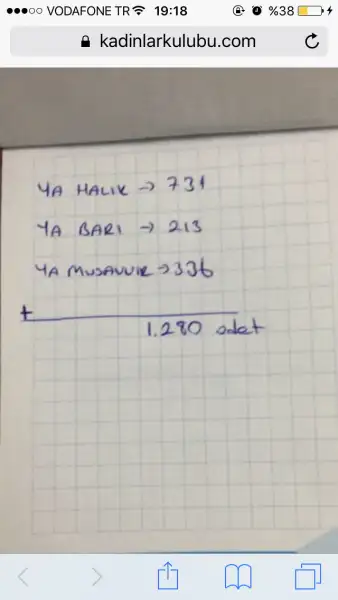 VODAFONE TR 19:18 %38
kadinlarkulubu.com
YA HALIK → 731
YA BARI → 213
YA MUSAVVIR → 336
+
1.280 adet